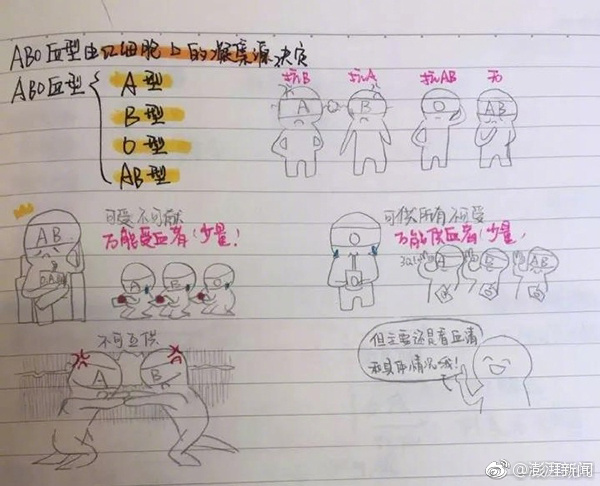 ABO血型由红细胞上的凝集源决定
ABO血型
A型
B型
O型
AB型
抗B 抗A 抗AB 无
A B O AB
可受不可献
万能受血者(少量!
AB
A B O
可供所有不可受
万能供血者(少量,
O
A B AB
不可互供
A B
但主要还是看血清
和具体情况哦!
@澎湃新闻